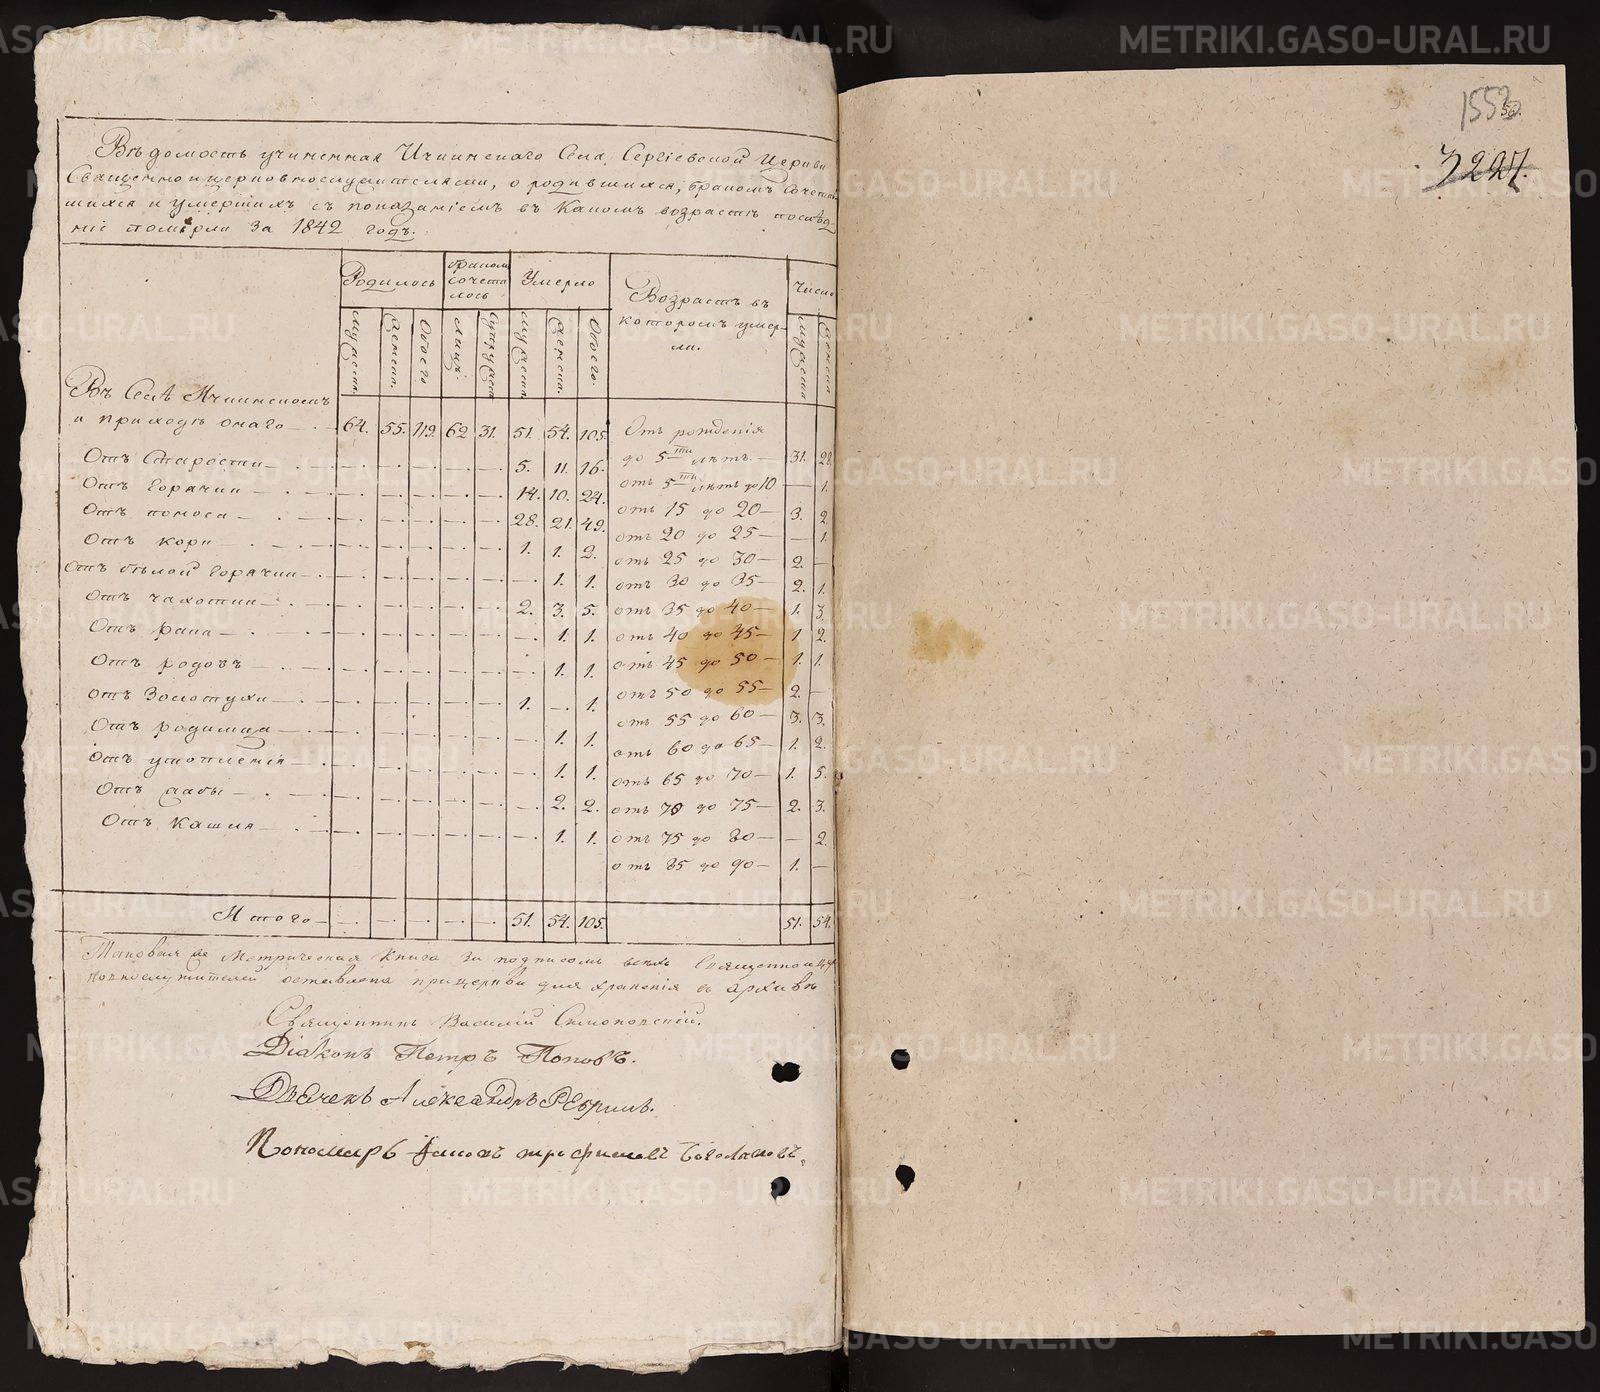 Вѣдомость учиненная Ичкинскаго Села, Сергіевской Церкви
Священно и церковнослужителями, о родившихся, бракомъ Сочетав
шихся и умершихъ съ показаніемъ въ Какомъ возрастѣ послѣд
ніе померли за 1842 годъ.
Родилось бракомъ сочета лось Умерло Возрастъ въ которомъ умер- ли. Число
мужеска. женска. Обоего лицъ. Супружеств мужеска. женска. Обоего. мужеска женска
Въ Селѣ Ичкинскомъ
и приходѣ онаго — 64. 55. 119. 62 31. 51. 54. 105. Отъ рожденія
до 5ти лѣтъ. — 31. 28.
Отъ Старости — 5. 11. 16.
отъ 5ти лѣтъ до 10 — 1.
Отъ Горячки — 14. 10. 24.
отъ 15 до 20 — 3. 2.
Отъ поноса — 28. 21. 49.
отъ 20 до 25 — — 1.
Отъ кори — 1. 1. 2.
отъ 25 до 30 — 2. —
Отъ бѣлой горячки — — 1. 1.
отъ 30 до 35 — 2. 1.
Отъ чахотки — 2. 3. 5.
отъ 35 до 40 — 1. 3.
Отъ рака — — 1. 1.
отъ 40 до 45 — 1 2.
Отъ родовъ — — 1. 1.
отъ 45 до 50 — 1. 1.
отъ Золотухи — 1. — 1.
отъ 50 до 55 — 2. —
Отъ родимца — 1. 1.
отъ 55 до 60 — 3. 3.
отъ 60 до 65 — 1. 2.
Отъ утопленія — 1. 1.
отъ 65 до 70 — 1. 5.
Отъ жабы — 2. 2.
отъ 70 до 75 — 2. 3.
Отъ Кашля — 1. 1.
отъ 75 до 80 — — 2.
отъ 85 до 90 — 1. —
Итого — 51. 54. 105. 51. 54.
Таковая же Метрическая Книга за подписомъ всѣхъ Священно и цер
ковнослужителей оставлена при церкви для храненія въ архивѣ
Священникъ Василій
Діаконъ Петръ Поповъ.
Дьячекъ Александръ
Пономарь
155
3227.
METRIKI.GASO-URAL.RU